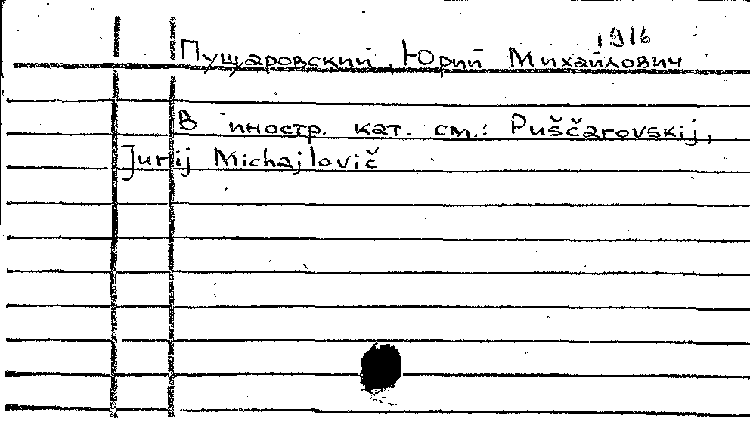 1916
Пущаровский, Юрий Михайлович
В иностр. кат. см.: Puščarovskij,
Jurij Michajlovič